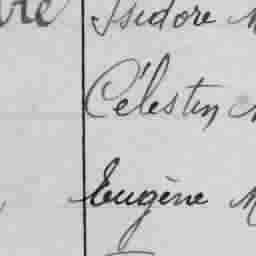 Isidore
Célestin
Eugène